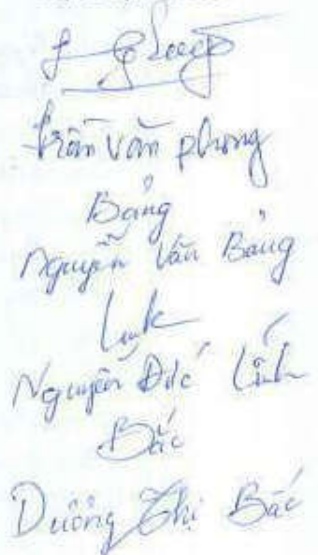 Trần Văn Phong
Bảng
Nguyễn Văn Bảng
Linh
Nguyễn Đức Lĩnh
Bắc
Dương Thị Bắc